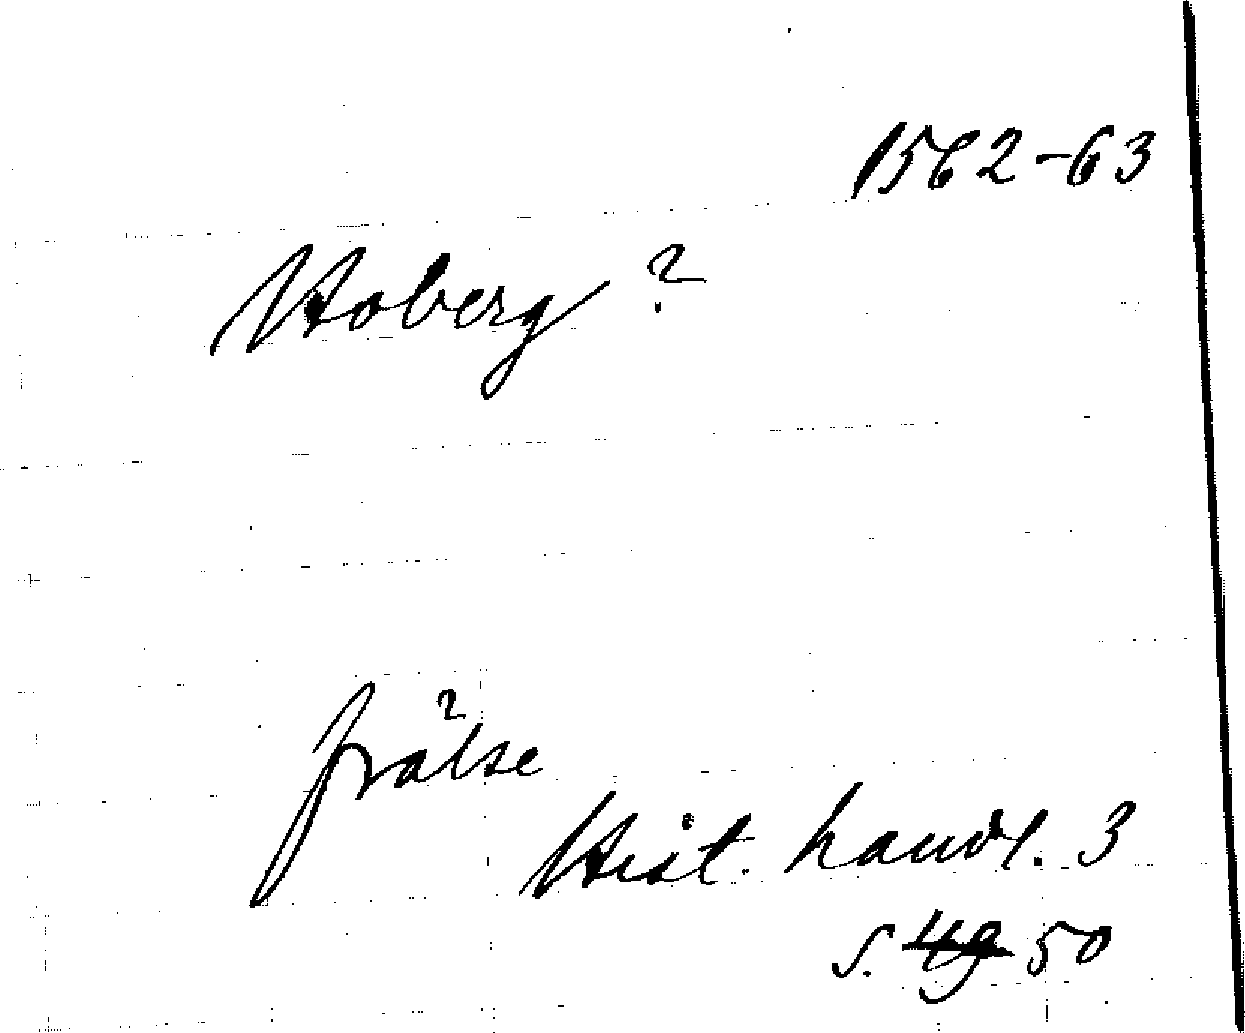 1562-63
Hoberg ?
frälse
Hist. handl. 3
s. 49 50